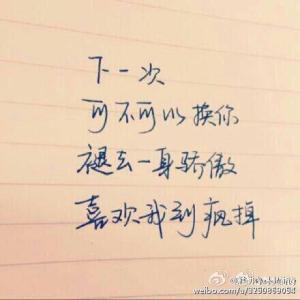 下一次
可不可以换你
褪去一身骄傲
喜欢我到疯掉
weibo.com/u/3290869054